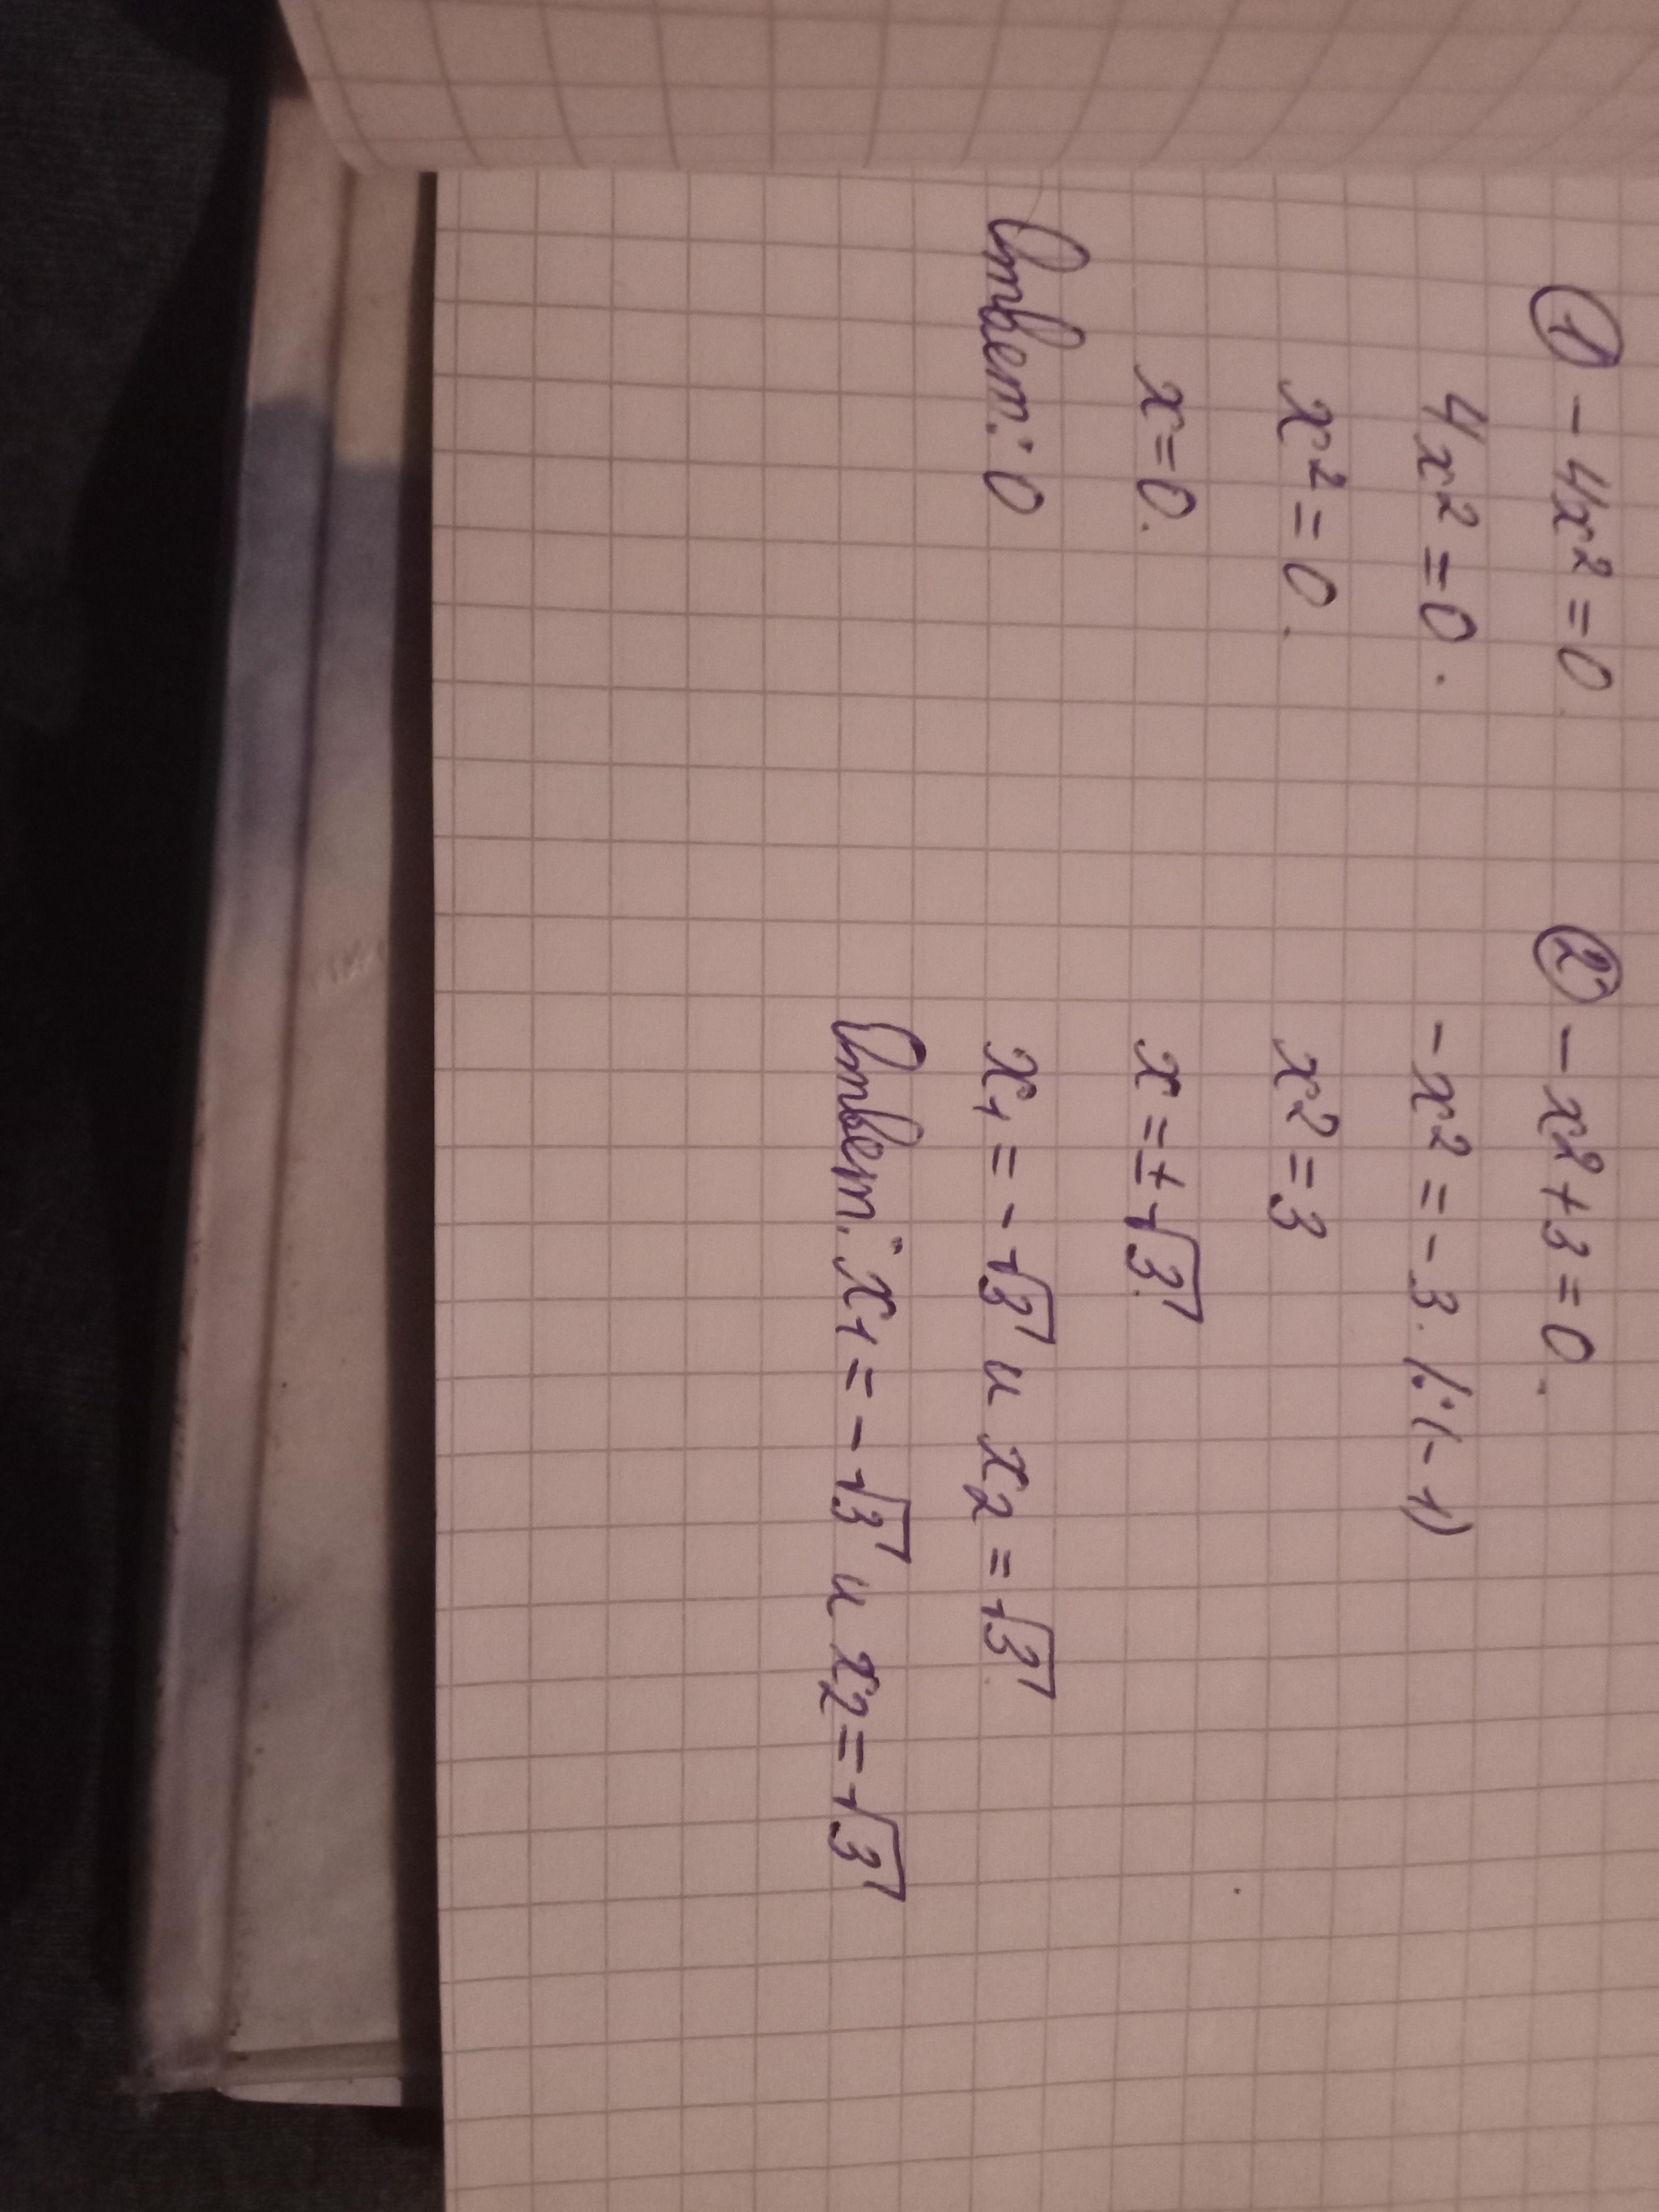 ① - 4x² = 0.
4x² = 0.
x² = 0.
x = 0.
Ответ: 0
② - x² + 3 = 0.
- x² = - 3. |:(-1)
x² = 3
x = ± √3.
x₁ = - √3 и x₂ = √3.
Ответ: x₁ = - √3 и x₂ = √3